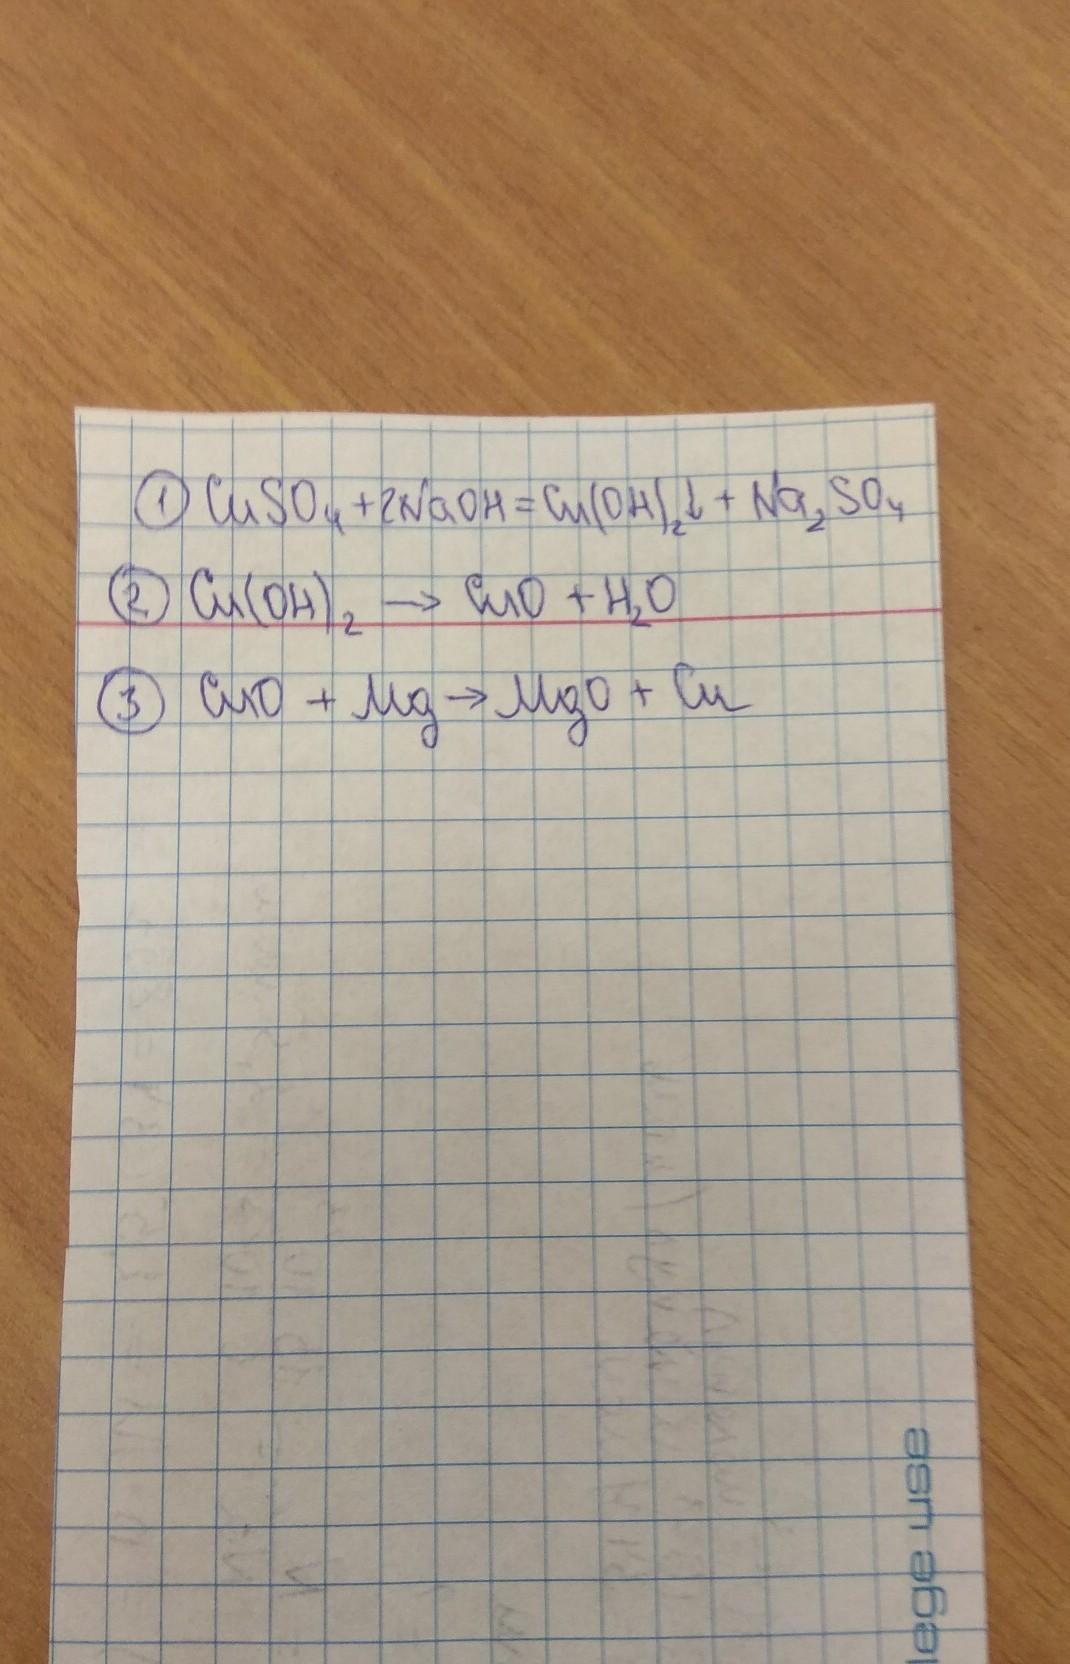 ① CuSO₄ + 2NaOH = Cu(OH)₂↓ + Na₂SO₄
② Cu(OH)₂ → CuO + H₂O
③ CuO + Mg → MgO + Cu
lege use